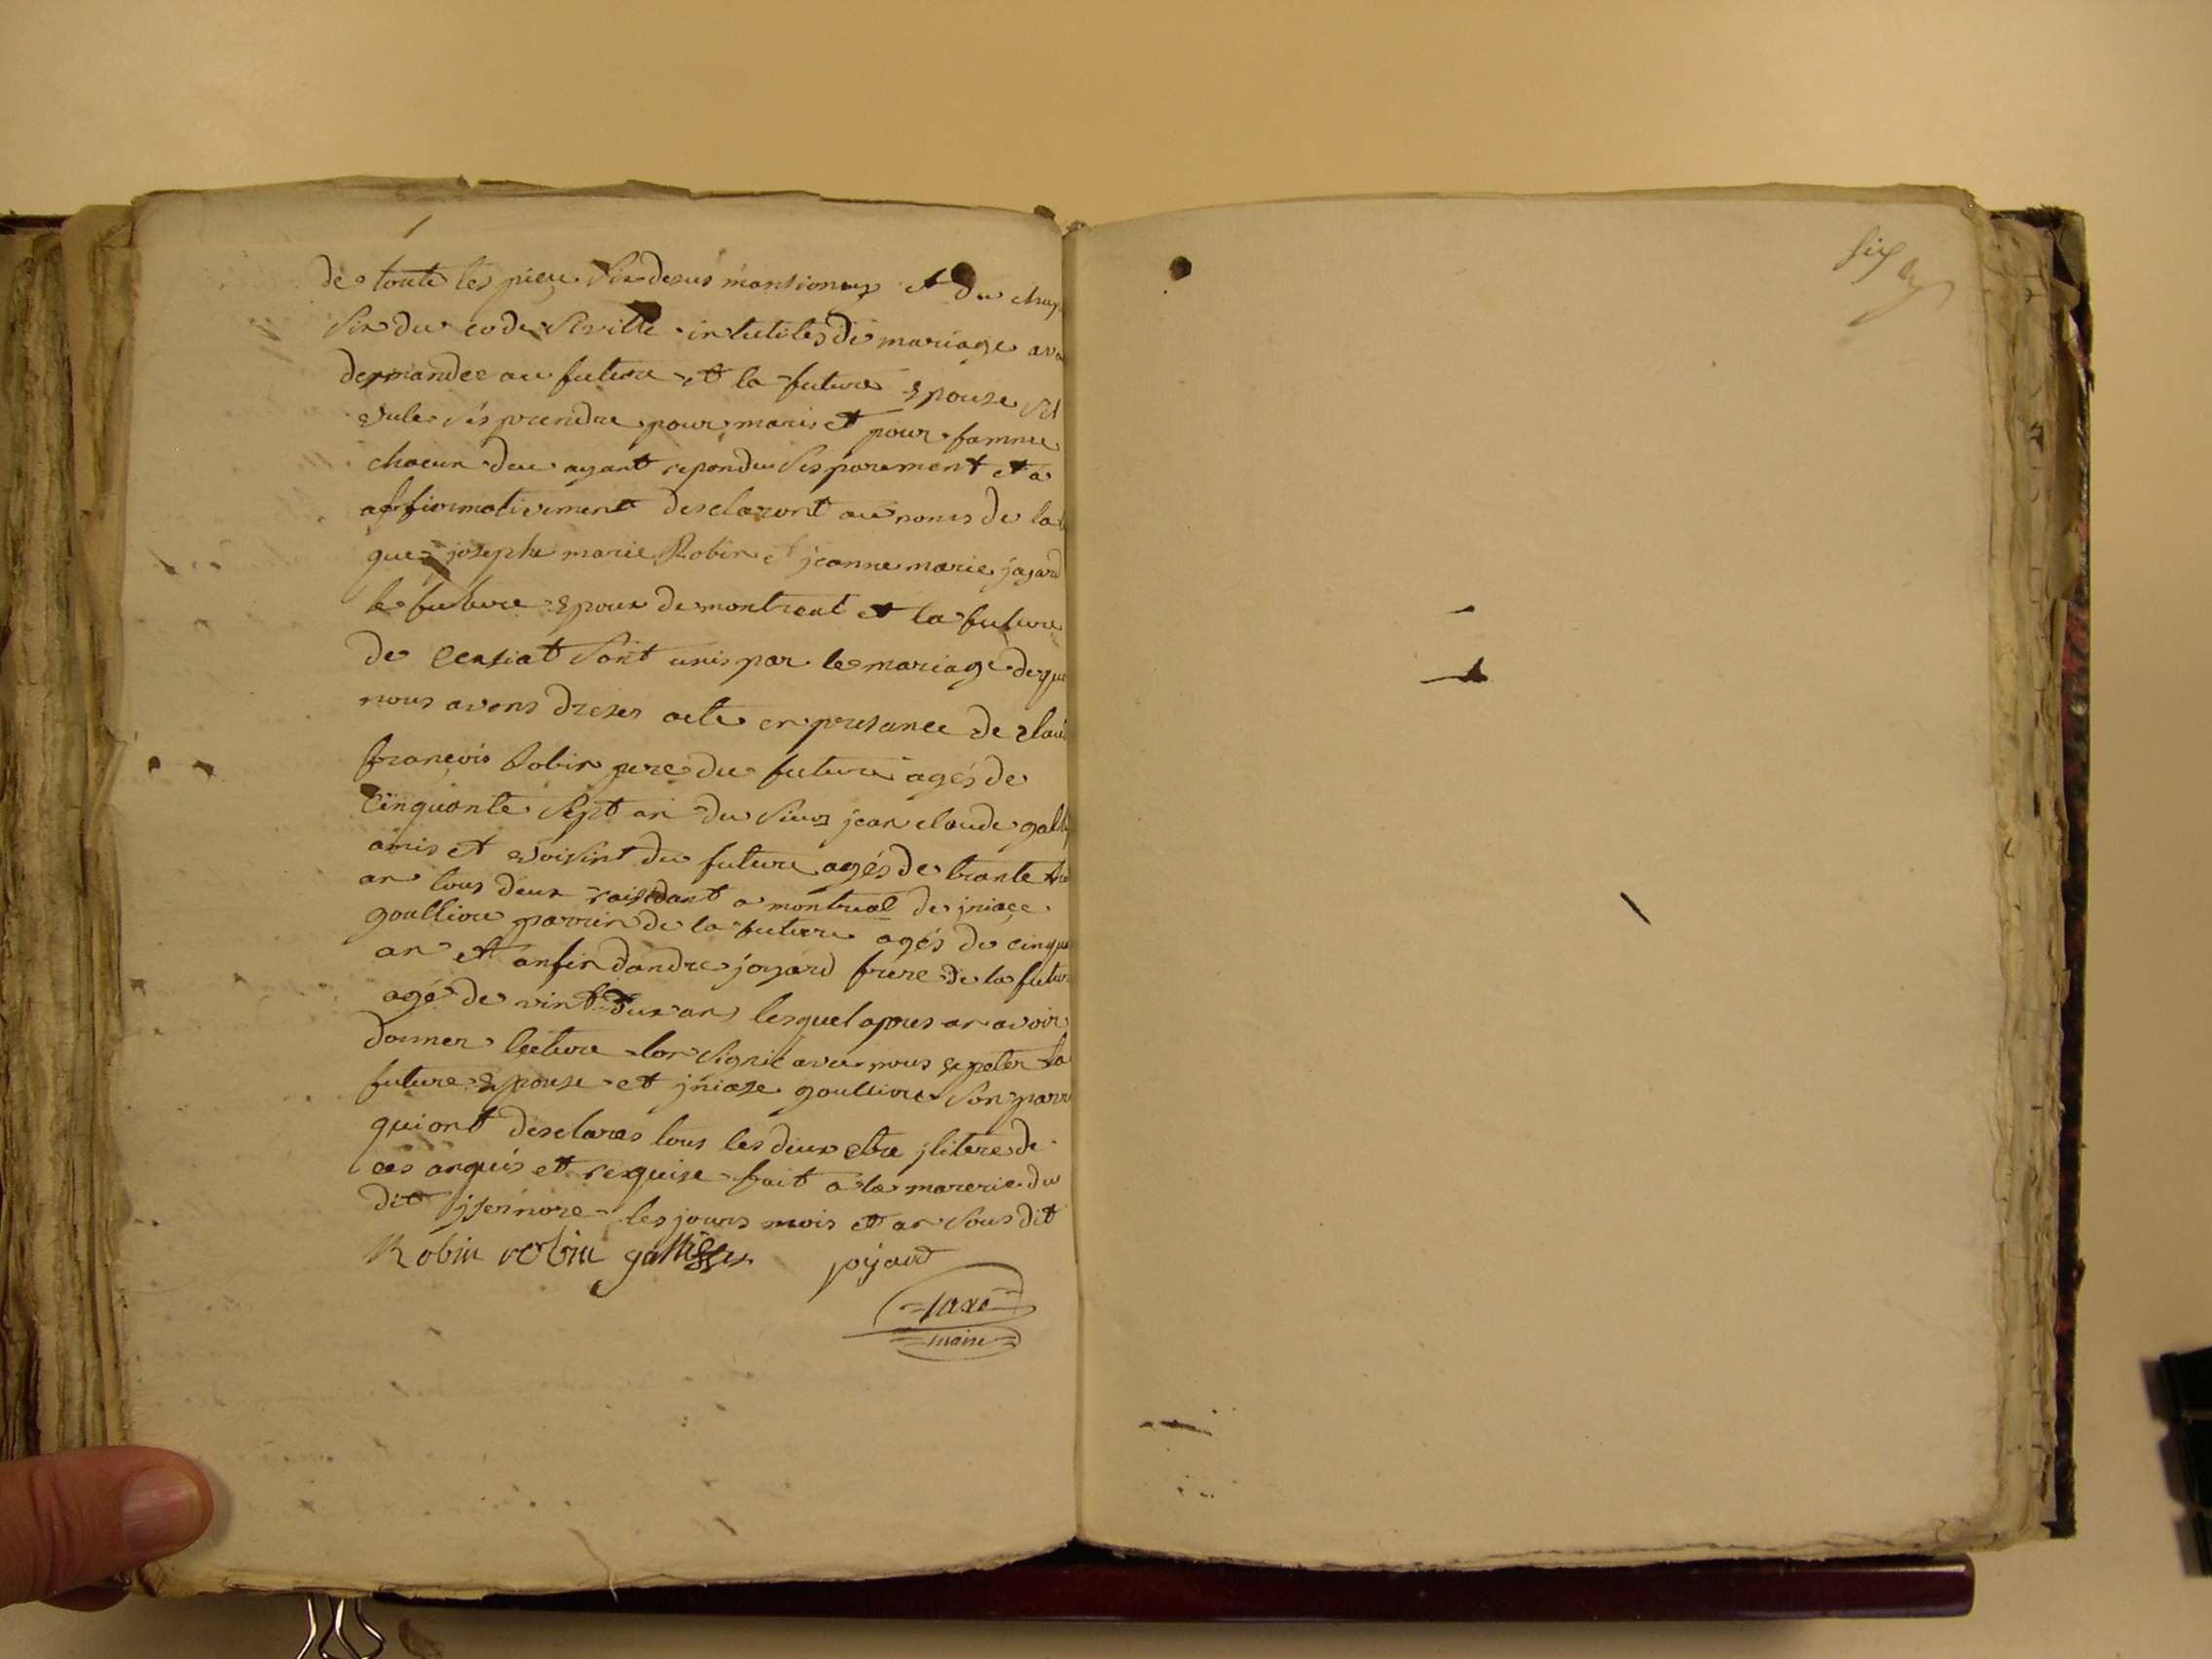 de toute les pieu Sis desus mansioneez et du chap
Sis du code Siville intutiles di mariage avo
demandee au future et la future Epouse Sil
vule ses prendre pour maris et pour famme
chacun deu ayant repondu Sesparement et a
affirmativement desclaront au noms de la l
que josephe marie Robin et jeanne marie joyard
le future Epoux de montreal et la future
de Cersiat Sont unis par le mariage dequ
nous avons dreser acte en presance de clau
françois Robin pere du future agés de
Cinquante Sept an du Sieur jean claude gall
amis et voisint du future agés de trante
an tous deux raisidant a montreal de jniace
goullione parrin de la future agés de cinqu
an et anfin dandre joyard frere de la futur
agé de vint deux an lesquel apres an avoir
donner lecture lon Signié avec nous Exepter la
future Epouse et jniase goullione Son parr
qui ont desclares tous les deux etre jlitere de
ces anquis et requise fait a la marerie du
dit jsernore les jours mois et an Sous dit
Robin robin joyard
maire
six